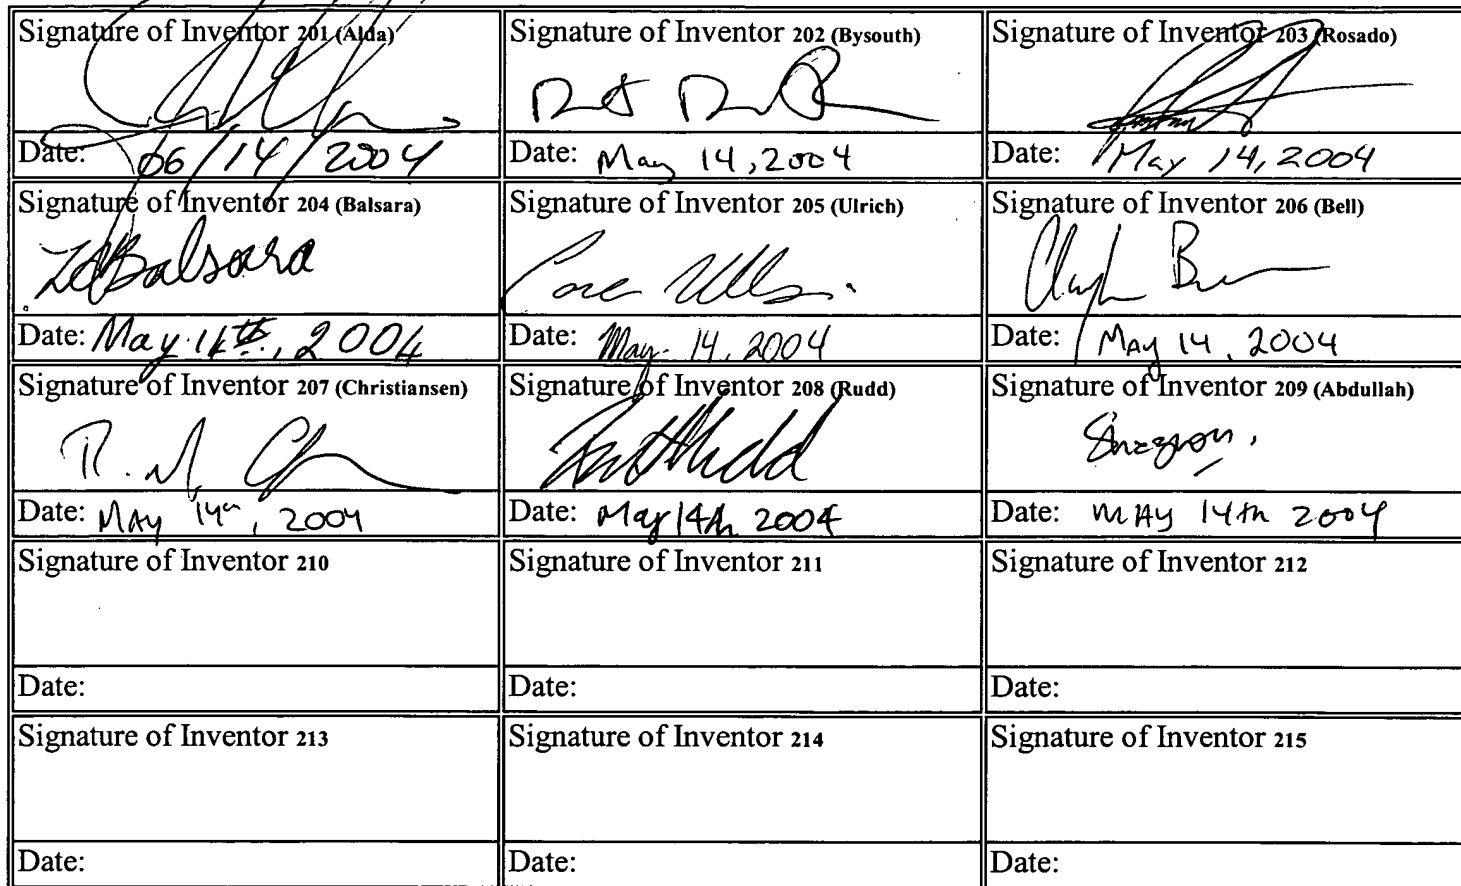 Signature of Inventor 201 (Alda) Signature of Inventor 202 (Bysouth) Signature of Inventor 203 (Rosado)
Date: 06/14/2004 Date: May 14, 2004 Date: May 14, 2004
Signature of Inventor 204 (Balsara) Signature of Inventor 205 (Ulrich) Signature of Inventor 206 (Bell)
Balsara
Date: May 14th, 2004 Date: May 14, 2004 Date: May 14, 2004
Signature of Inventor 207 (Christiansen) Signature of Inventor 208 (Rudd) Signature of Inventor 209 (Abdullah)
Date: MAY 14th, 2004 Date: May 14th 2004 Date: MAY 14th 2004
Signature of Inventor 210 Signature of Inventor 211 Signature of Inventor 212
Date: Date: Date:
Signature of Inventor 213 Signature of Inventor 214 Signature of Inventor 215
Date: Date: Date: